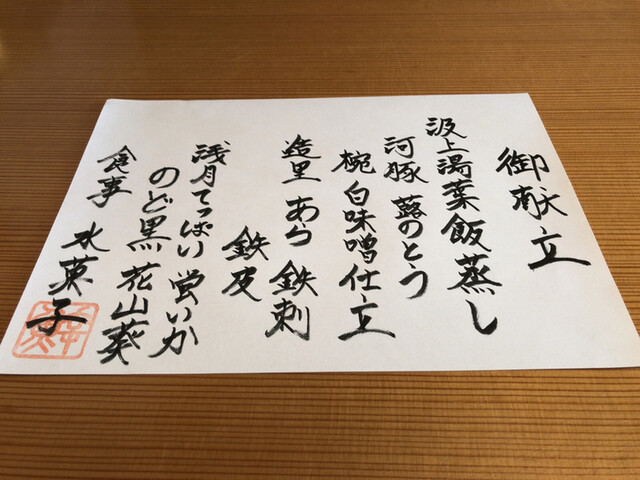 御献立
汲上湯葉飯蒸し
河豚 蕗のとう
椀 白味噌仕立
造里 あら 鉄刺
鉄皮
浅月てっぱい 蛍いか
のど黒 花山葵
食事 水菓子